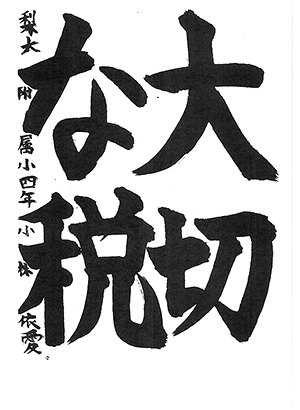 大切
な税
梨大附属小四年小林依愛